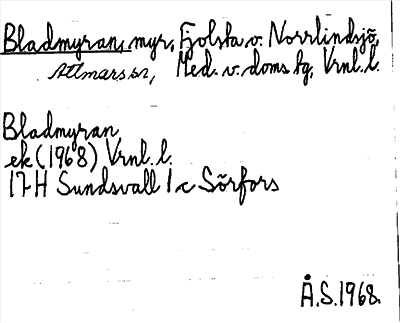 Bladmyran, myr, Fjolsta v. Norrlindsjö,
Attmars sn, Med. v. doms. tg, Vrnl. l.
Bladmyran
ek (1968) Vrnl. l.
17 H Sundsvall 1 c Sörfors
Å.S. 1968.